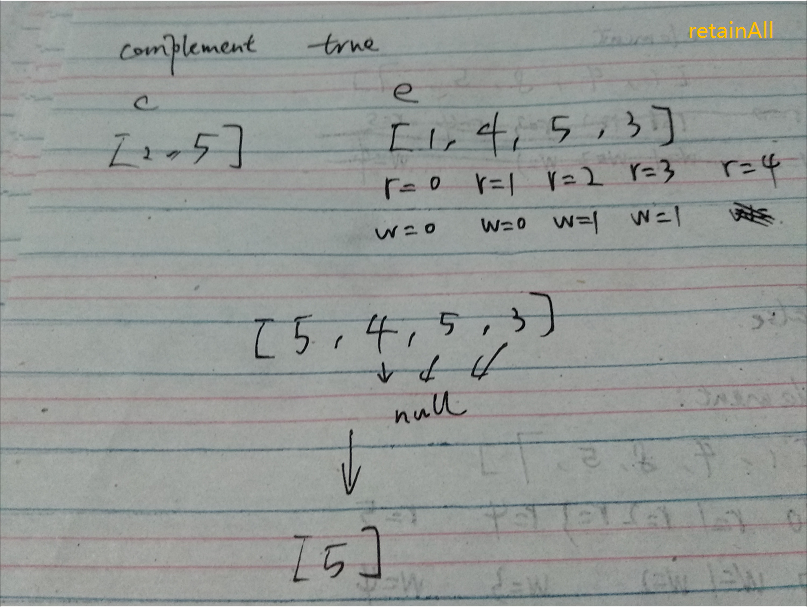 retainAll
complement true
c e
[2, 5] [1, 4, 5, 3]
r=0 r=1 r=2 r=3 r=4
w=0 w=0 w=1 w=1
[5, 4, 5, 3]
null
[5]